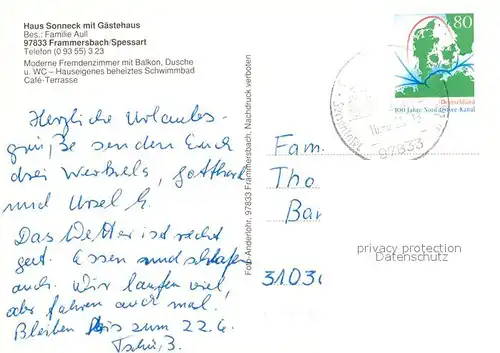 Haus Sonneck mit Gästehaus
Bes.: Familie Aull
97833 Frammersbach/Spessart
Telefon (0 93 55) 3 23
Moderne Fremdenzimmer mit Balkon, Dusche
u. WC – Hauseigenes beheiztes Schwimmbad
Café-Terrasse
Herzliche Urlaubs-
grüße senden Euch
drei Gotthard
und Ursel G.
Das Wetter ist recht
gut. Essen und schlafen
auch. Wir laufen viel,
aber fahren auch mal.
Bleiben bis zum 22.6.
Tschü, B.
Foto-Anderlohr, 97833 Frammersbach, Nachdruck verboten
80
Deutschland
100 Jahre Nord-Ostsee-Kanal
97833
Fam
Tho
Bar
privacy protection
Datenschutz